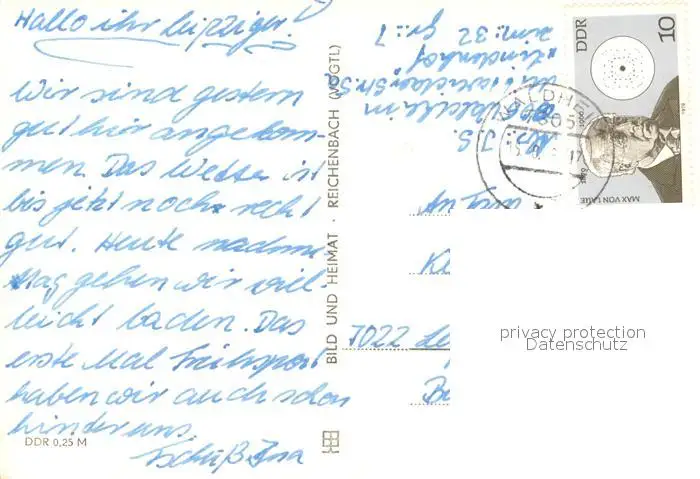 Hallo ihr Leipziger!
Wir sind gestern
gut hier angekom-
men. Das Wetter ist
bis jetzt noch recht
gut. Heute nachmit-
tag gehen wir viel-
leicht baden. Das
erste Mal Frühsport
haben wir auch schon
hinter uns.
Tschüß Ina
DDR 0,25 M
BILD UND HEIMAT · REICHENBACH (VOGTL)
Waldheim
Lindenhof
Zim.: 32 Gr.: 7
7022 Le
DDR
10
MAX VON LAUE
1879 1960
WALDHEIM
privacy protection
Datenschutz